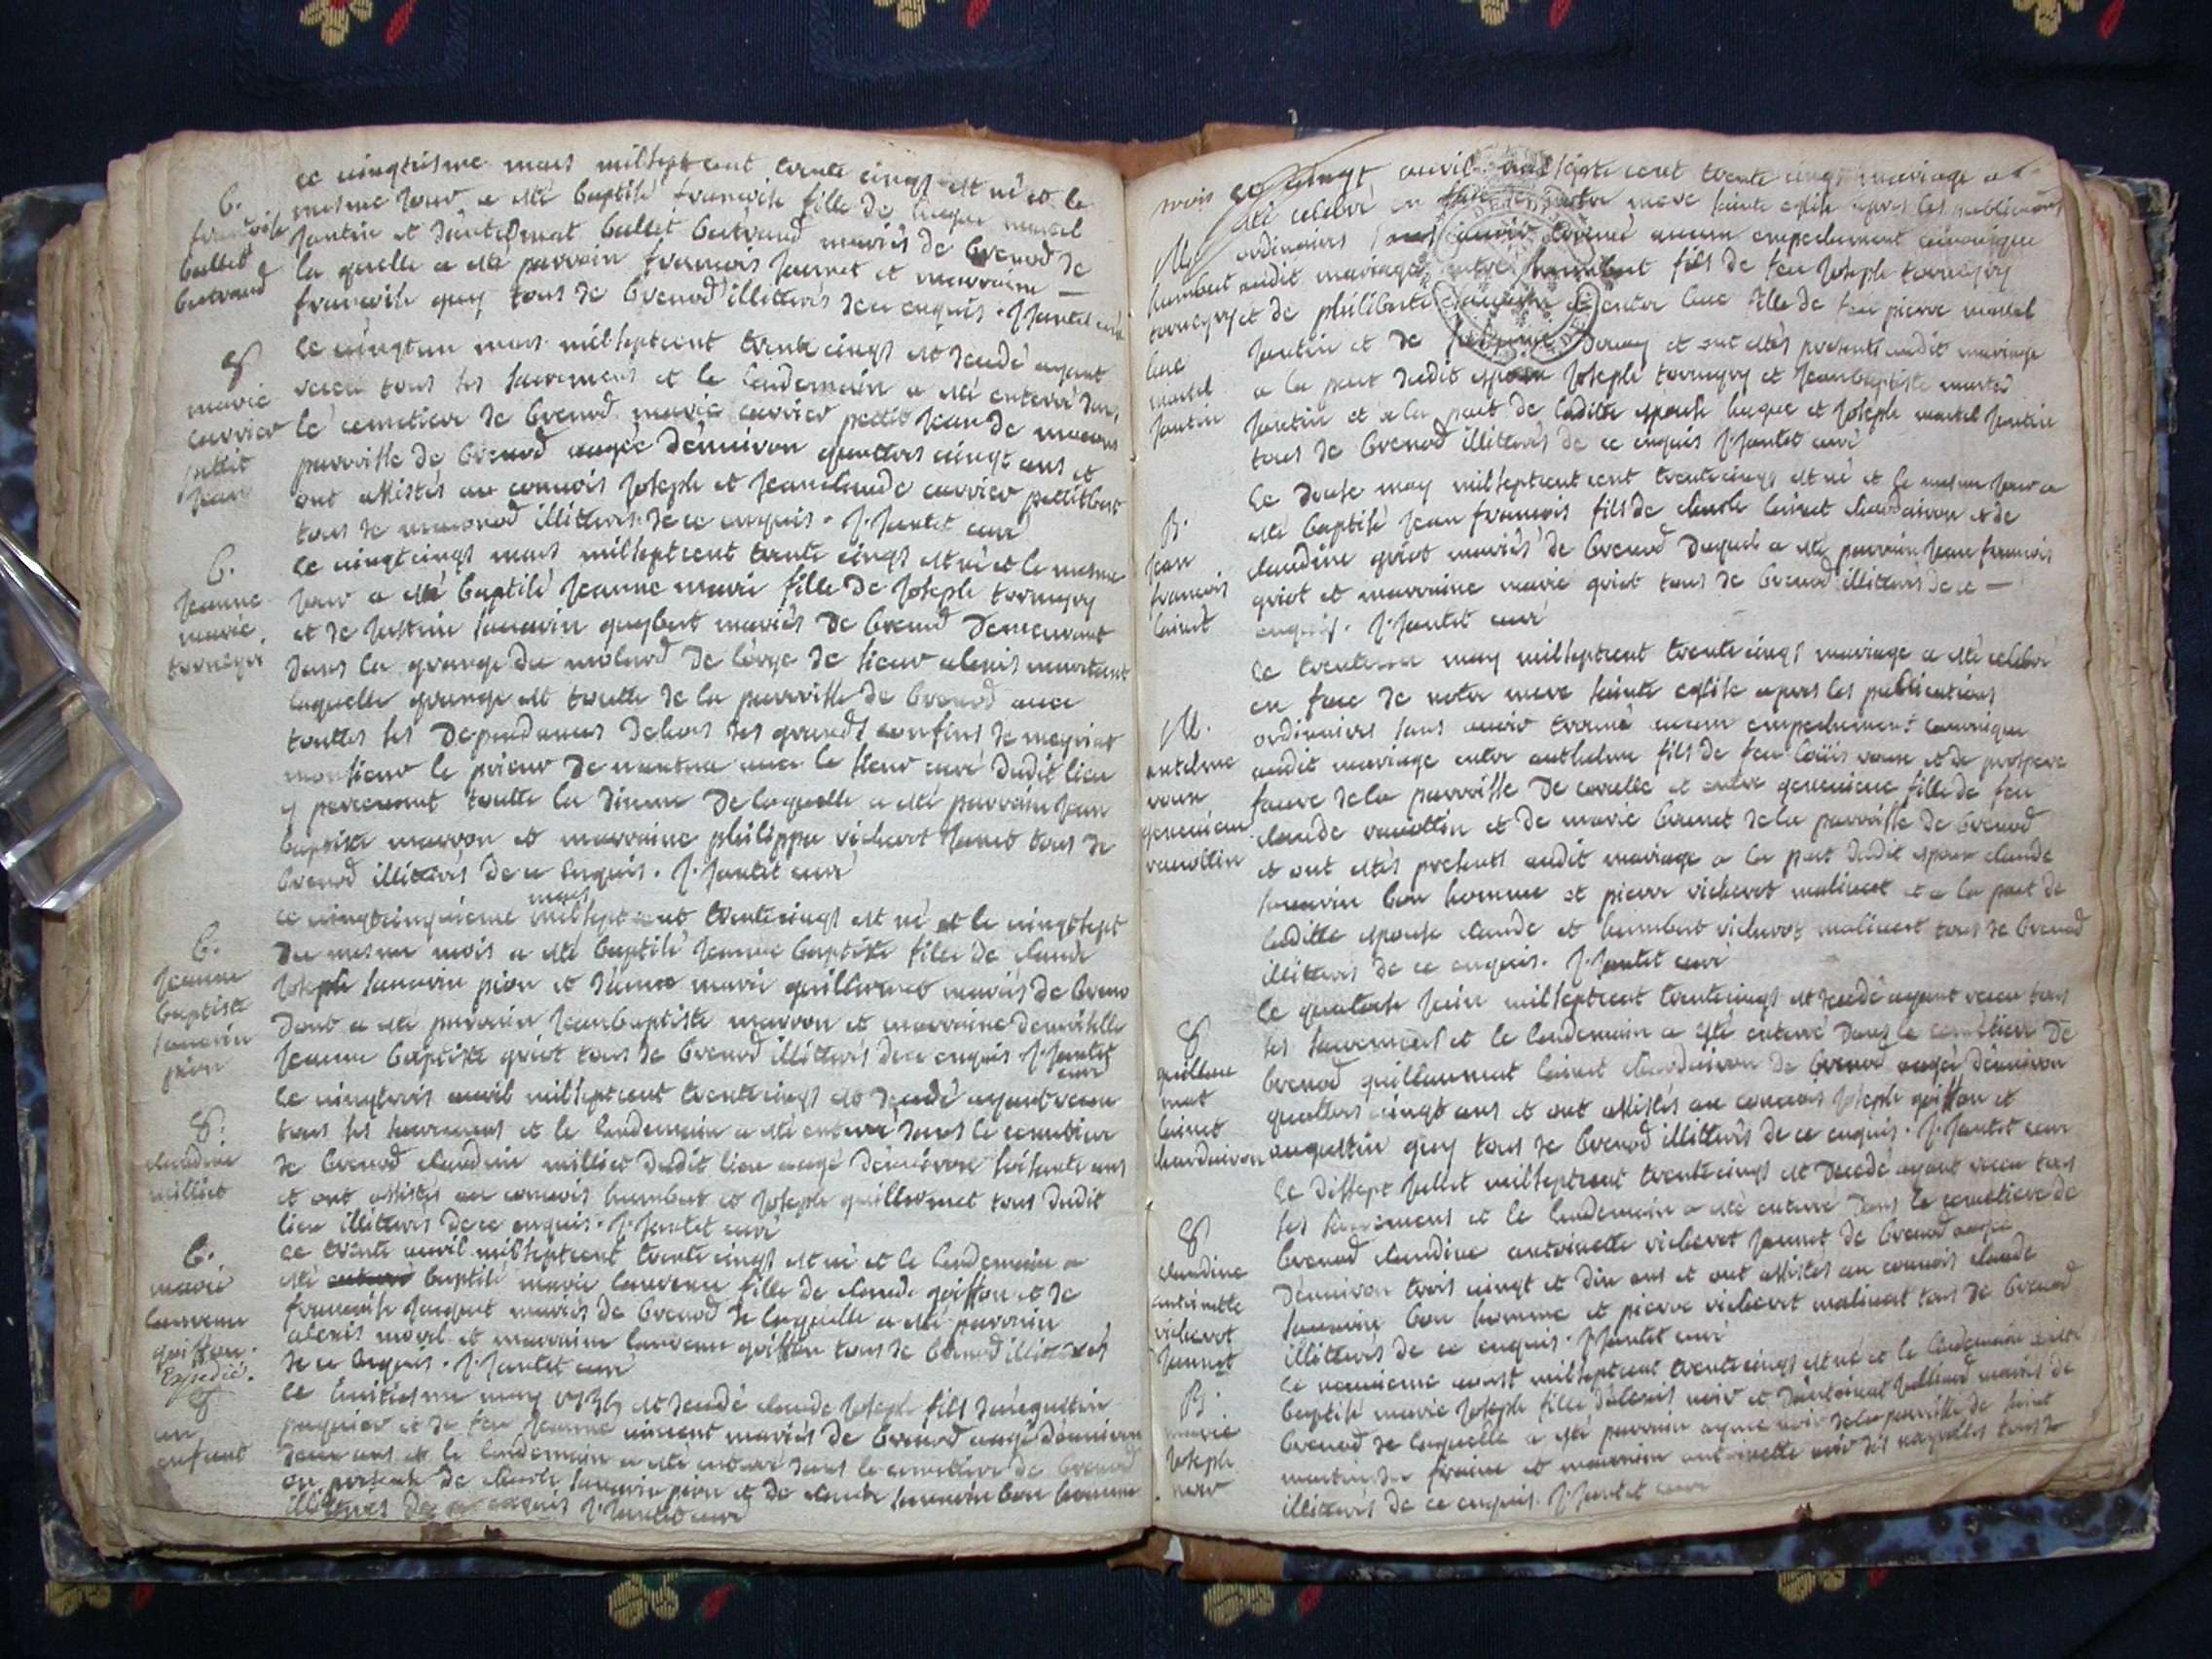 B.
françoise
ballet
bertrand
ce vingtiesme mars milsept cent trente cinqs est né et le
mesme jour a esté baptisé françoise fille de huque martel
jantin et ballet bertrand mariés de brenod de
la quelle a esté parrain francois jannet et marraine
francoise guy tous de brenod illitterés de ce enquis. J. Jantet curé
marie
carrier
pettit
jean
le vingt un mars milseptcent trente cinqs est decedé ayant
receu tous ses sacremens et le lendemain a esté enterré dans
le cemetiere de brenod marie carrier pettit jean de
parroisse de brenod aagée d'environ quattres vingt ans et
ont assistés au convois Joseph et Jeanclaude carrier
tous de illitterés de ce enquis. J. Jantet curé
B.
Jeanne
marie
torneyry
le vingtcinqs mars milseptcent trente cinqs est né et le mesme
jour a esté baptisé Jeanne marie fille de Joseph torneyry
et de savarin guybert mariés de brenod demeurant
dans la grange du molard de l'orge de sieur alexis
laquelle grange est toutte de la parroisse de brenod avec
touttes ses dependances dehors des grands confins de meyriat
monsieur le prieur de nantua avec le sieur curé dudit lieu
y percevant toutte la disme de laquelle a esté parrain Jean
baptiste marron et marraine philippa vicheret Janet tous de
brenod illitterés de ce enquis. J. Jantet curé
B.
Jeanne
baptiste
savarin
pion
mars
ce vingtcinquieme milsept cent trente cinqs est né et le vingtsept
du mesme mois a esté baptisé Jeanne baptiste fille de claude
Joseph savarin pion et d'anne marie guillermet mariés de breno
dont a esté parrain Jeanbaptiste marron et marraine demoiselle
Jeanne baptiste griot tous de brenod illitterés de ce enquis J. Jantet
curé
claudine
milliet
le vingttrois avril milseptcent trente cinqs est decedé ayant receu
tous ses sacremens et le lendemain a esté enterré dans le cemetiere
de brenod claudine milliet dudit lieu aagé d'environ soixante ans
et ont assistés au convois humbert et Joseph guillermet tous dudit
lieu illitterés de ce enquis. J. Jantet curé
B.
marie
laurence
goiffon.
Expedié.
ce trente avril milseptcent trente cinqs est né et le lendemain a
esté baptisé marie laurence fille de claude goiffon et de
francoise jacquet mariés de brenod de laquelle a esté parrain
alexis morel et marraine laurence goiffon tous de brenod illitterés
de ce enquis. J. Jantet curé
un
enfant
ce huitiesme may 1735 est decedé claude Joseph fils d'augustin
et de feu Jeanne vincent mariés de brenod aagé d'environ
deux ans et le lendemain a esté enterré dans le cemetiere de brenod
en presence de savarin pion et de claude savarin bon homme
illitterés de ce enquis J. Jantet curé
M.
humbert
torneyry
luce
martel
jantin
ce vingt avril mil septe cent trente cinqs mariage a
esté celebré en face de notre mere sainte eglise apres les publications
ordinaires sans avoir trouvé aucun empechement canonique
audit mariage entre humbert fils de feu Joseph torneyry
et de philiberte et entre luce fille de feu pierre martel
jantin et de et ont estés presents audit mariage
a la part dudit espoux Joseph torneyry et Jeanbaptiste martel
jantin et a la part de laditte espouse huque et Joseph martel jantin
tous de brenod illitterés de ce enquis J. Jantet curé
B.
Jean
francois
lainet
le douse may milseptcent cent trente cinqs est né et le mesme jour a
esté baptisé Jean francois fils de lainet chardeiron et de
claudine griot mariés de brenod duquel a esté parrain Jean francois
griot et marraine marie griot tous de brenod illitterés de ce
enquis. J. Jantet curé
M.
antelme
genevieve
ravottin
le trente may milseptcent trente cinqs mariage a esté celebré
en face de notre mere sainte eglise apres les publications
ordinaires sans avoir trouvé aucun empechement canonique
audit mariage entre anthelme fils de feu loüis et de prospere
favre de la parroisse de corcelle et entre genevieve fille de feu
claude ravottin et de marie brunet de la parroisse de brenod
et ont estés presents audit mariage a la part dudit espoux claude
savarin bon homme et pierre vicheret malinert et a la part de
laditte espouse claude et humbert vicheret malinert tous de brenod
illitterés de ce enquis. J. Jantet curé
guillau
mat
lainet
chardeiron
le quatorse Juin milseptcent trente cinqs est decedé ayant receu tous
ses sacremens et le lendemain a esté enterré dans le cemetiere de
brenod guillaumat lainet chardeiron de brenod aagé d'environ
quattres vingt ans et ont assistés au convois Joseph goiffon et
augustin guy tous de brenod illitterés de ce enquis. J. Jantet curé
claudine
antoinette
vicheret
Jannet
le dissept Jullet milseptcent trente cinqs est decedé ayant receu tous
ses sacremens et le lendemain a esté enterré dans le cemetiere de
brenod claudine antoinette vicheret Jannet de brenod aagée
d'environ trois vingt et dix ans et ont assistés au convois claude
savarin bon homme et pierre vicheret malinert tous de brenod
illitterés de ce enquis. J. Jantet curé
B.
marie
Joseph
le neuvieme aoust milseptcent trente cinqs est né et le lendemain a esté
baptisé marie Joseph fille d'alexis et mariés de
brenod de laquelle a esté parrain de la parroisse de saint
martin du fraine et marraine antoinette tous
illitterés de ce enquis. J. Jantet curé